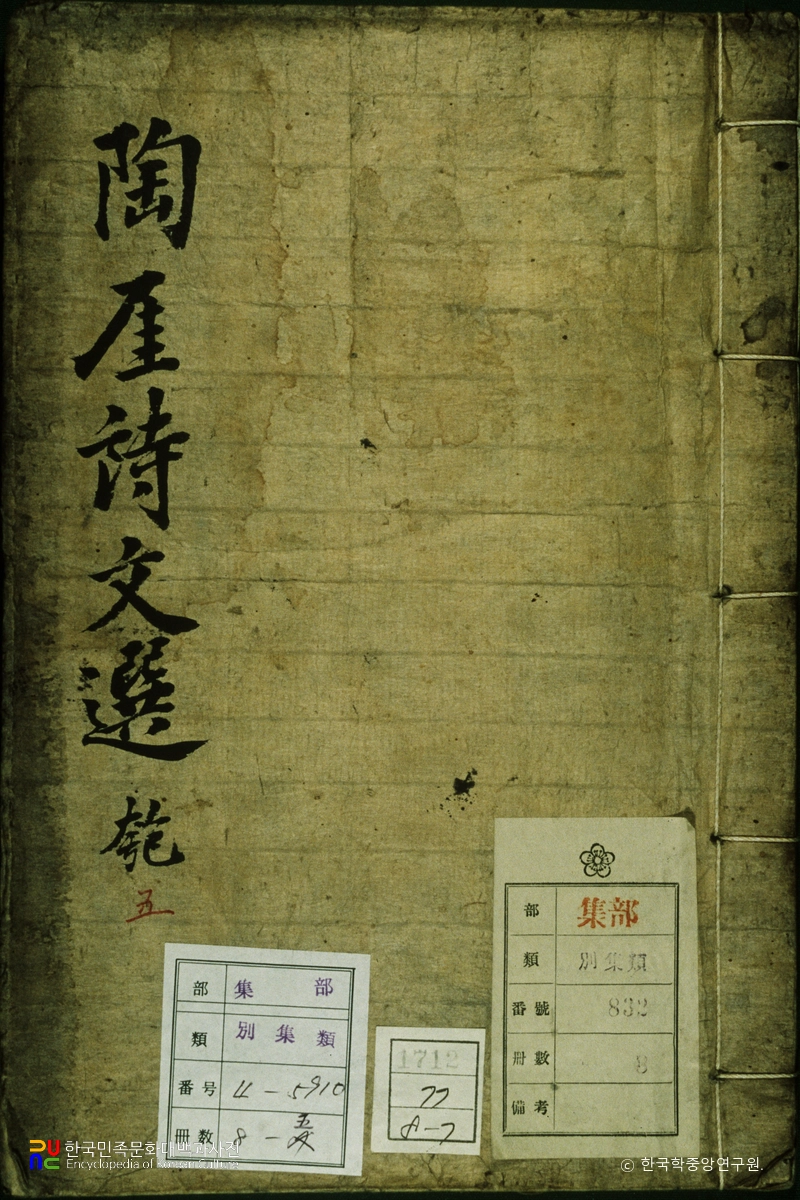 陶厓詩文選 匏
五
部 集部
類 別集類
番号 4-5910
冊數 8-五
1712
部 集部
類 別集類
番號 832
冊數 8
備考
한국민족문화대백과사전
Encyclopedia of Korean Culture
© 한국학중앙연구원.